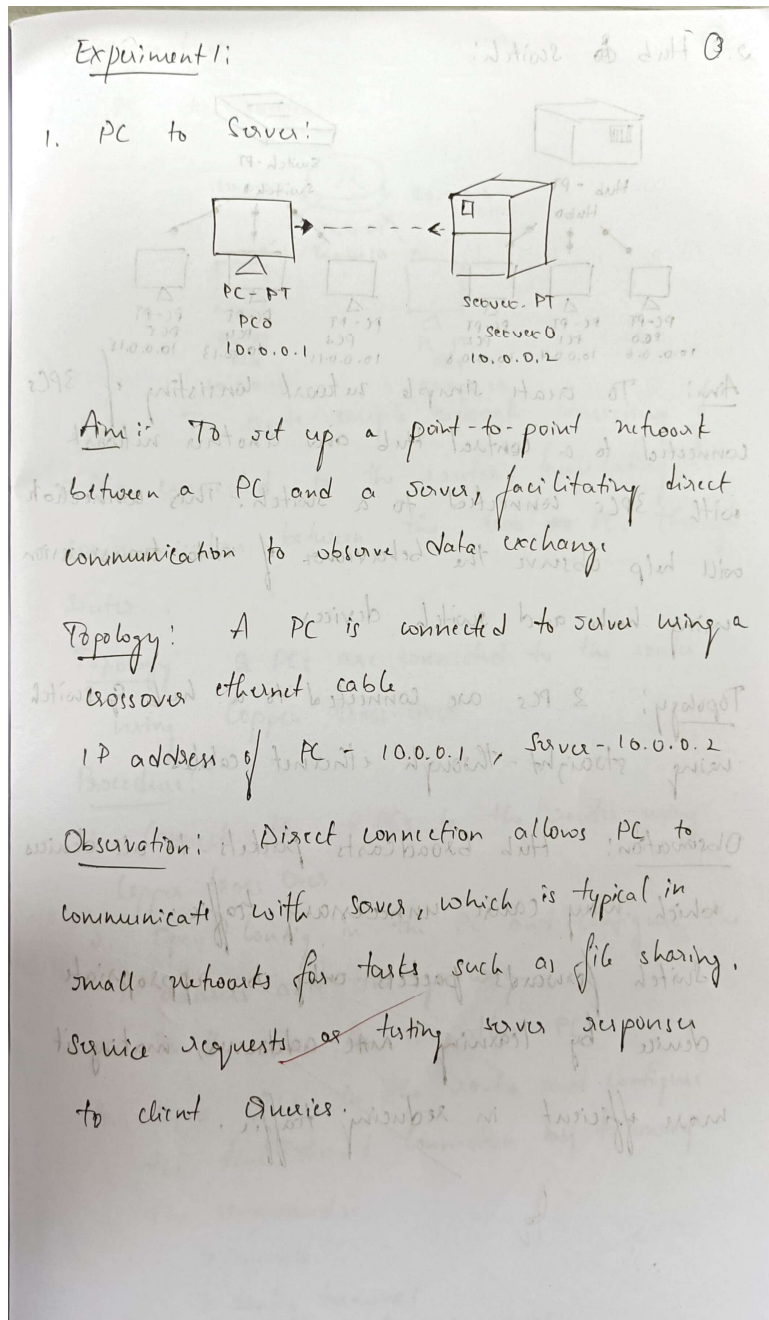 Experiment 1:
3
1. PC to Server:
PC-PT
PC0
10.0.0.1
Server-PT
Server0
10.0.0.2
Aim:- To set up a point-to-point network
between a PC and a server, facilitating direct
communication to observe data exchange
Topology: A PC is connected to server using a
crossover ethernet cable
IP address of PC - 10.0.0.1, Server - 10.0.0.2
Observation: Direct connection allows PC to
communicate with server, which is typical in
small networks for tasks such as file sharing,
service requests or testing server responses
to client Queries.